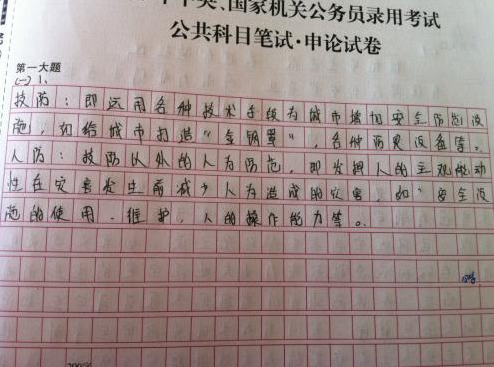 中央、国家机关公务员录用考试
公共科目笔试·申论试卷
第一大题
(一) 1、
技防：即运用各种技术手段为城市增加安全防范设
施，如给城市打造“金钢罩”，各种防灾设备等。
人防：技防以外的人为防范，即发挥人的主观能动
性在灾害发生前减少人为造成的灾害，如“安全设
施的使用、维护，人的操作能力等。
200字